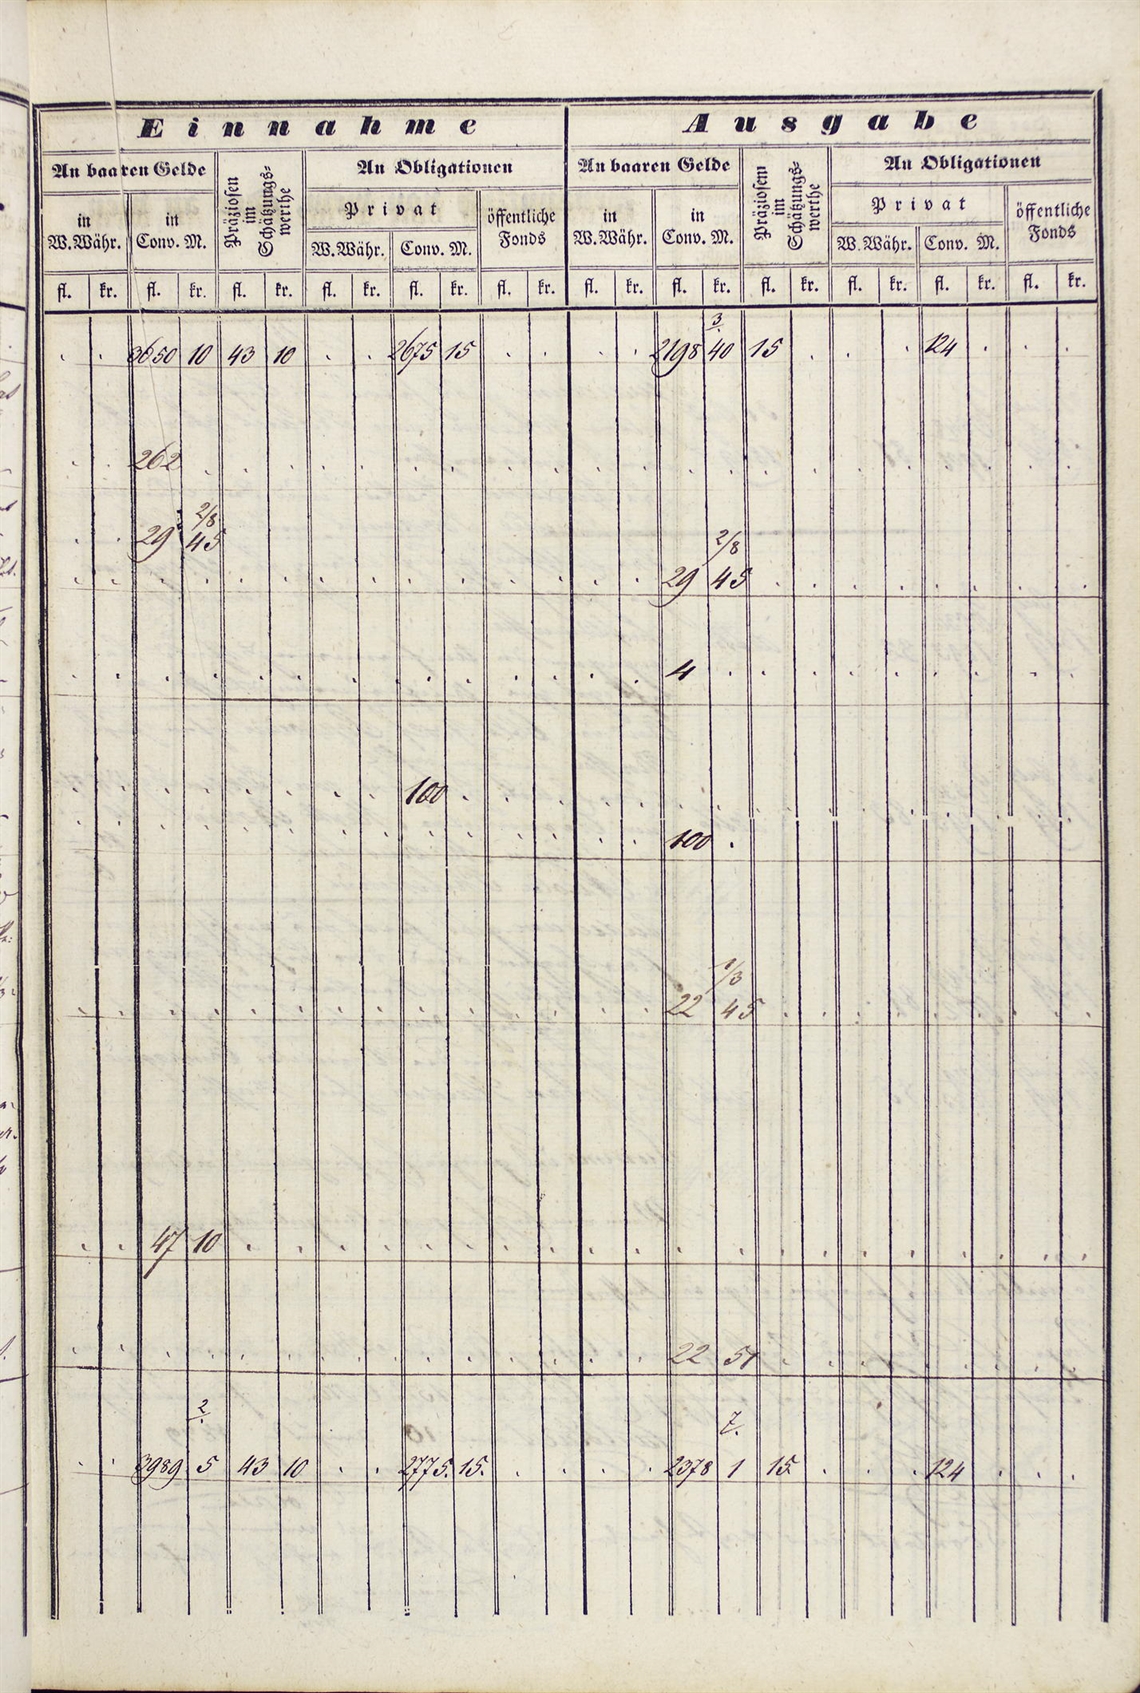 Einnahme Ausgabe
An baaren Gelde Präziosen im Schätzungs-werthe An Obligationen An baaren Gelde Präziosem im Schätzungs-werthe An Obligationen
in W.Währ. in Conv. M. Privat öffentliche Fonds in W.Währ. in Conv. M. Privat öffentliche Fonds
W.Währ. Conv. M. W.Währ. Conv. M.
fl. kr. fl. kr. fl. kr. fl. kr. fl. kr. fl. kr. fl. kr. fl. kr. fl. kr. fl. kr. fl. kr. fl. kr.
3
. . 3650 10 43 10 . . 2675 15 . . . . 2198 40 15 . . . 124 . . .
. . 262 . . . . . . . . . . . . . . . . . . . .
2/8
. . 29 45
2/8
. . . . . . . . . . . . . . 29 45 . . . . . . . .
. . . . . . . . . . . . . . 4 . . . . . . . . .
. . . . . . . . 100 . . . . . . . . . . . . . . .
. . . . . . . . . . . . . . 100 .
1/3
. . . . . . . . . . . . . . 22 45 . . . . . . . .
. . 47 10 . . . . . . . . . . . . . . . . . . . .
. . . . . . . . . . . . . . 22 51 . . . . . . . .
2 7.
. . 3989 5 43 10 . . 2775. 15. . . . . 2378 1 15 . . . 124 . . .